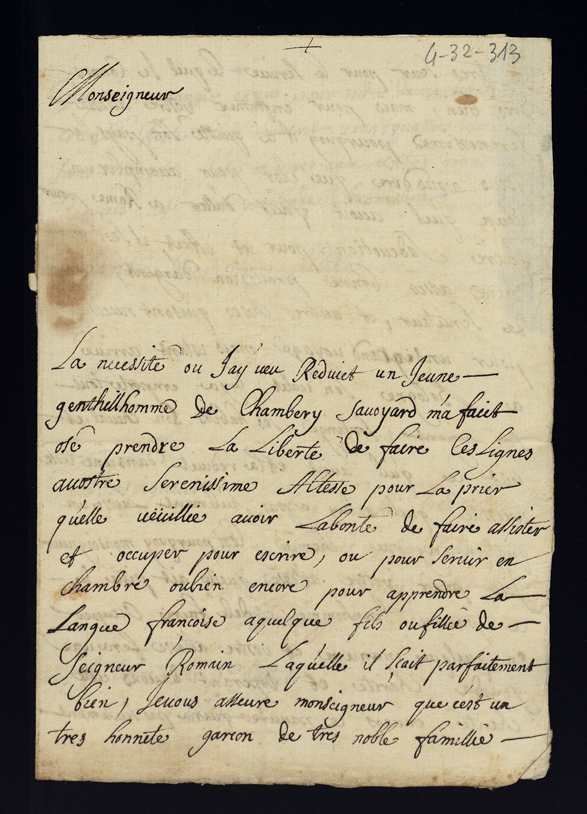 4-32-313
Monseigneur
La necessité ou Jay veu Reduict un Jeune
gentheilhomme de Chambery Savoyard m'a faict
osé prendre La Liberté de faire Ces Lignes
avostre Serenissime Altesse pour La prier
qu'elle veüillie avoir Labonté de faire assister
et occuper pour escrire, ou pour servir en
chambre oubien encore pour apprendre La
Langue françoise aquelque fils oufillie de
Seigneur Romain Laquelle il sçait parfaitement
bien, Jevous asseure monseigneur que c'est un
tres honnete garcon de tres noble famillie